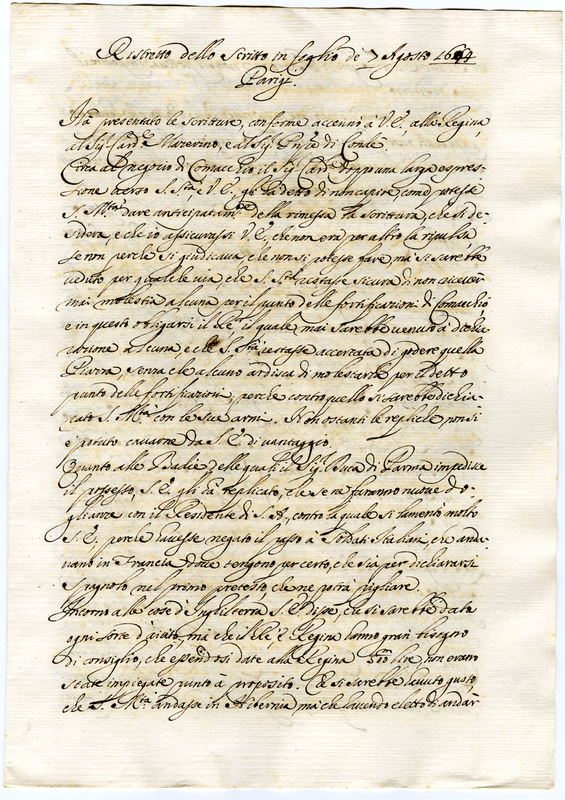 Ristretto dello scritto in foglio de 7 Agosto 1644
Parigi.
Hà presentato le scritture, conforme accennò à V.E. alla Regina,
al Sig.r Card.e Mazerino, e al Sig.r Pnpe di Condè.
Circa al negozio di Comacchio il Sig.r Card.e doppo una larga espres-
sione verso S. S.tà e V.E. gli hà detto di non capire come potesse
S. M.tà dare anticipatam.te della rimessa la scrittura, che si de-
sidera, e che io assicurassi V.E. che non era per altro la repulsa
se non perche si giudicava, che non si potesse fare, ma si sarebbe
veduto per qualche via, che S. S.tà restasse sicura di non ricever
mai molestia alcuna per il punto delle fortificazioni di Comacchio
e in questo obligarsi il Rè, il quale mai sarebbe venuto à dechia-
razione alcuna, e che S. S.tà restasse accertata di godere quella
Piazza, senza che alcuno ardisca di molestarla per il detto
punto delle fortificazioni, perche contro quello si sarebbe dichia-
rato S. M.tà con le sue armi. Non ostanti le repliche non si
è potuto cavarne da S.E. di vantaggio.
Quanto alle Badie, delle quali il Sig.r Duca di Parma impedisce
il possesso, S.E. gli hà replicato, che se ne faranno nuove do-
glianze con il Residente di S.A., contro la quale si lamentò molto
S.E. perche havesse negato il passo à soldati Italiani, che anda-
vano in Francia, dove tengono per certo, che sia per dichiararsi
Spagnolo nel primo pretesto, che ne potrà pigliare.
Intorno alle cose d'Inghilterra S.E. disse, che si sarebbe dato
ogni sorte d'aiuto, mà che il Rè, e Regina hanno gran bisogno
di consiglio, che essendosi date alla Regina 500 lire, non erano
state impiegate punto à proposito. Che si sarebbe havuto gusto,
che S. M.tà andasse in Hibernia, ma che havendo eletto di andar